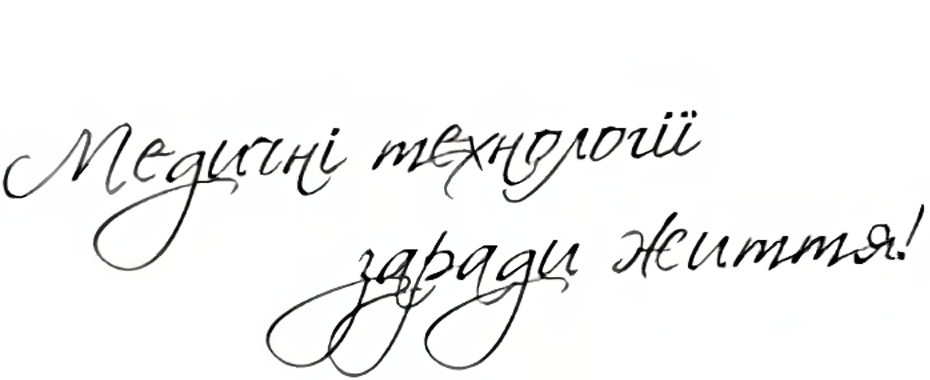 Медичні технології
заради життя!